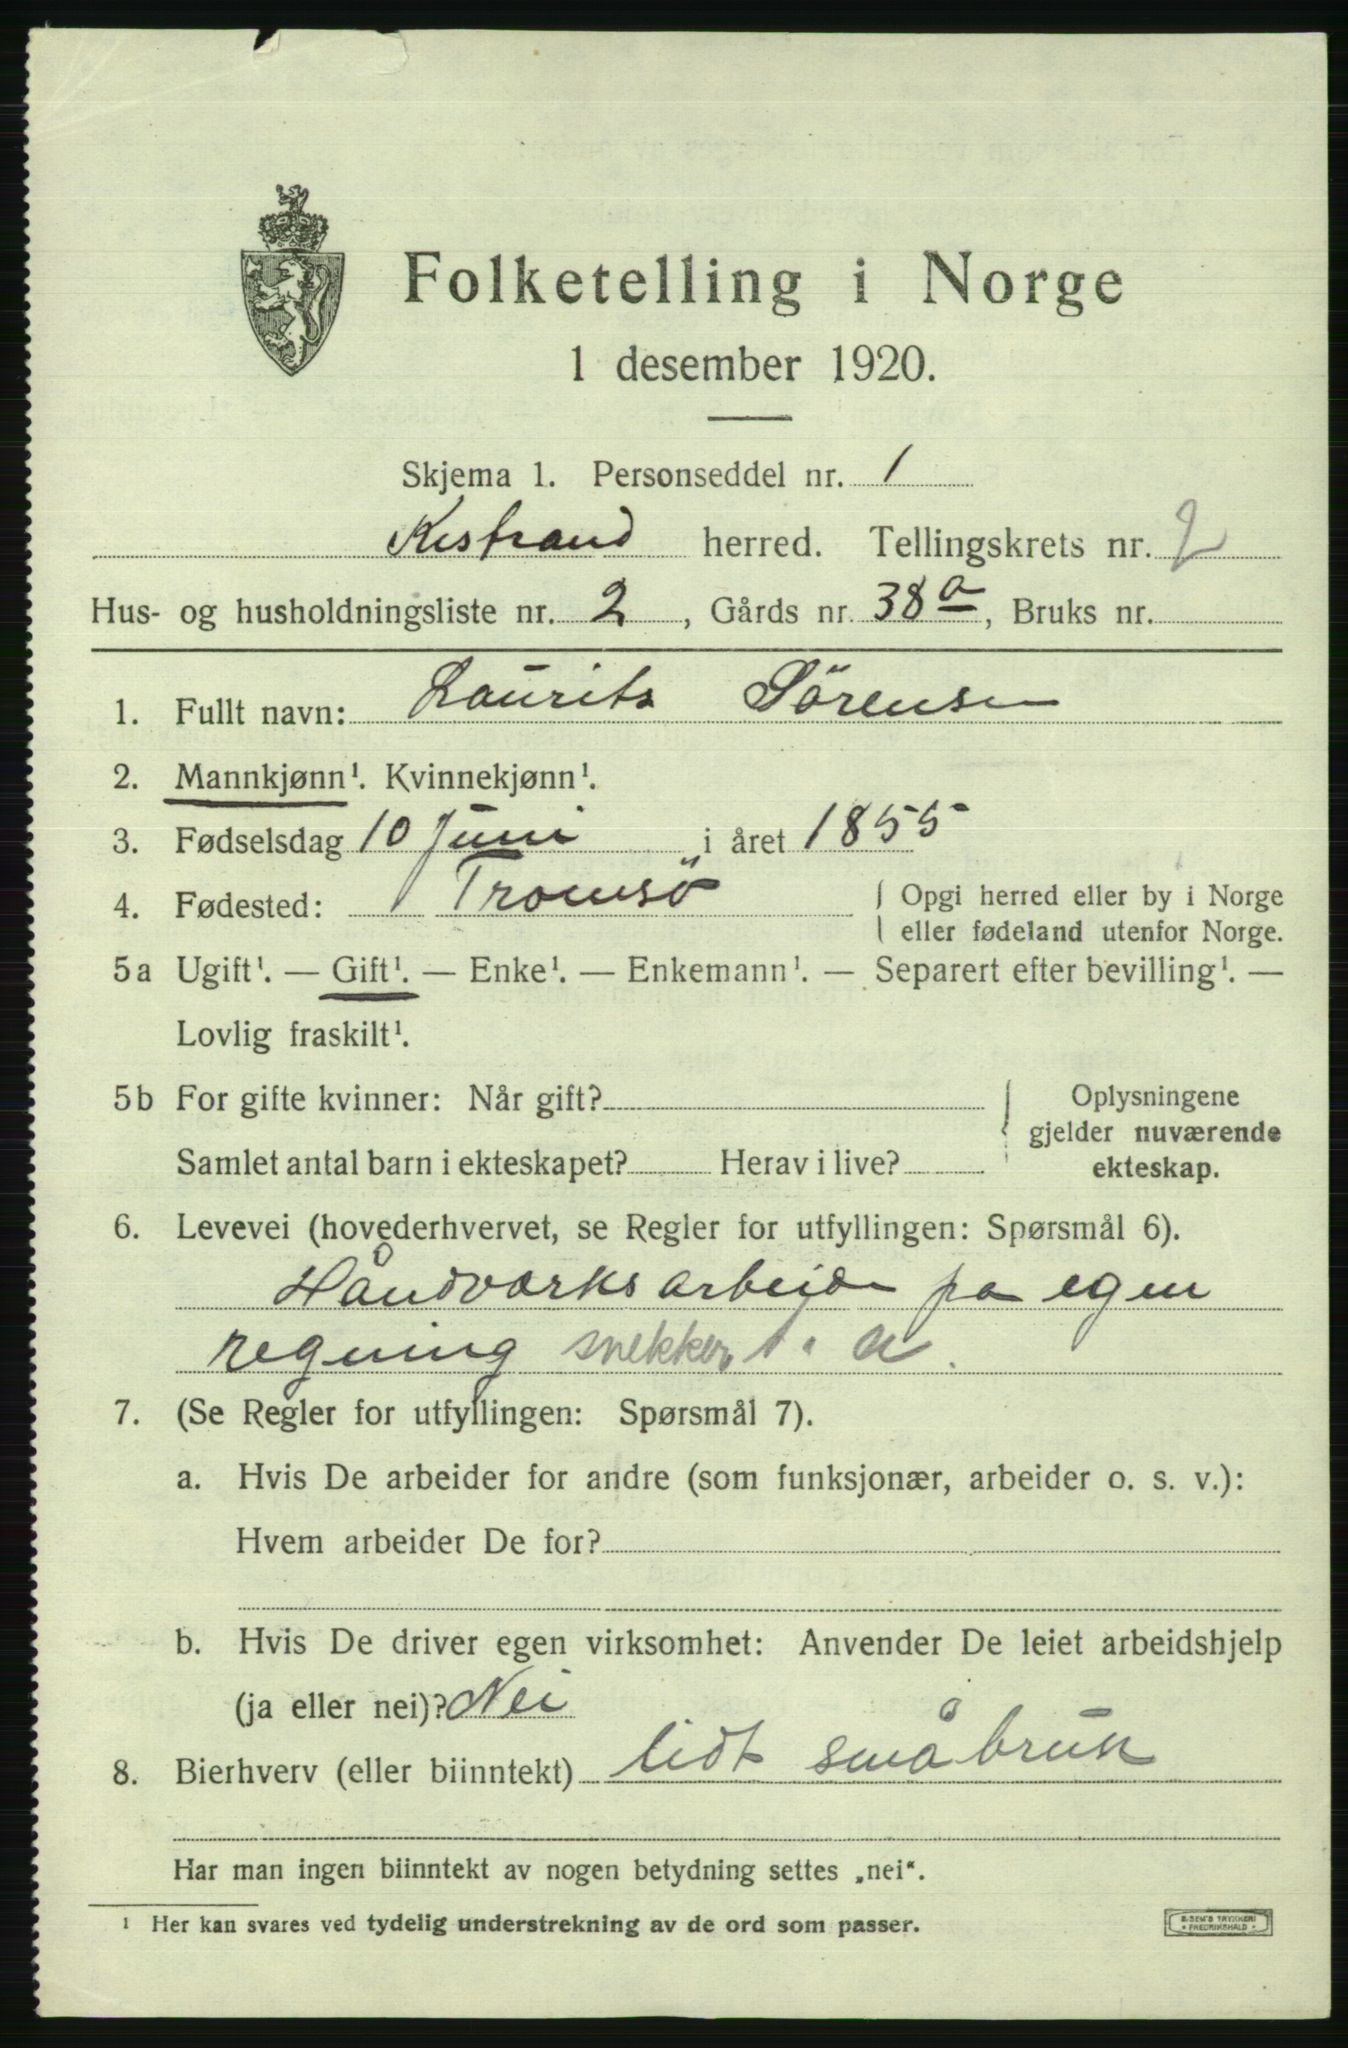 Folketelling i Norge
1 desember 1920.
Skjema 1. Personseddel nr. 1
Kistrand herred. Tellingskrets nr. 2
Hus- og husholdningsliste nr. 2, Gårds nr. 38a, Bruks nr.
1. Fullt navn: Laurits Sörensen
2. Mannkjønn¹. Kvinnekjønn¹.
3. Fødselsdag 10 Juni i året 1855
4. Fødested: Tromsö { Opgi herred eller by i Norge
eller fødeland utenfor Norge.
5a Ugift¹. — Gift¹. — Enke¹. — Enkemann¹. — Separert efter bevilling¹. —
Lovlig fraskilt¹.
5b For gifte kvinner: Når gift? { Oplysningene
gjelder nuværende
Samlet antal barn i ekteskapet? Herav i live? ekteskap.
6. Levevei (hovederhvervet, se Regler for utfyllingen: Spørsmål 6).
Håndværksarbeide på egen
regning snekker
7. (Se Regler for utfyllingen: Spørsmål 7).
a. Hvis De arbeider for andre (som funksjonær, arbeider o. s. v.):
Hvem arbeider De for?
b. Hvis De driver egen virksomhet: Anvender De leiet arbeidshjelp
(ja eller nei)? Nei
8. Bierhverv (eller biinntekt) lidt småbruk
Har man ingen biinntekt av nogen betydning settes „nei“.
¹ Her kan svares ved tydelig understrekning av de ord som passer.
FREDRIKSHALD